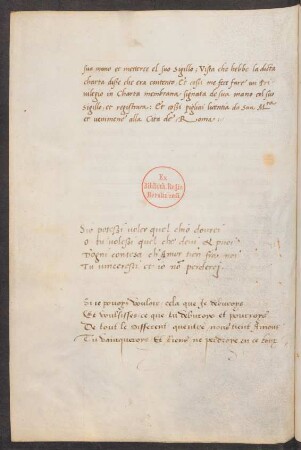 sua mano et mettere el suo sigillo: Vista che hebbe la detta
charta disse che era contento. Et cossi me fece fare un Pri-
vilegio in Charta membrana signata de sua mano col suo
sigillo, et registrata: Et cossi pigliai licentia de Sua Mta
et venimene alla Cita de Roma.
Ex
Biblioth. Regia
Berolinensi.
Sio potessi voler quel chio dovrei
O tu volessi quel che devi et puoi
Dogni contesa ch Amor tien fra noi
Tu vinceresti et io no perderei
Si ie pouoys vouloir, cela que ie deburoys
Et voulsisses ce que tu deburoys et pourroys
De tout le different quentre nous tient Amour
Tu vainqueroys Et ne perdroye en ce